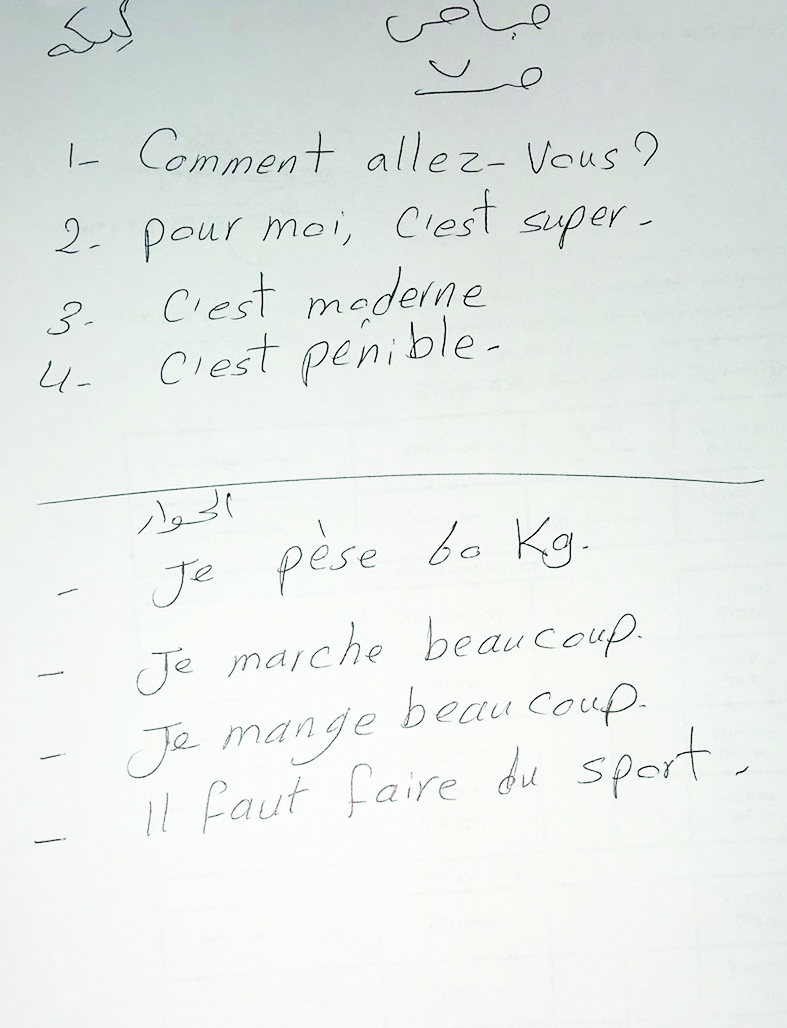 1- Comment allez-Vous?
2- pour moi, C'est super-
3- C'est moderne
4- C'est pénible-
الحوار
- Je pèse 60 Kg.
- Je marche beaucoup.
- Je mange beaucoup.
- Il faut faire du sport.